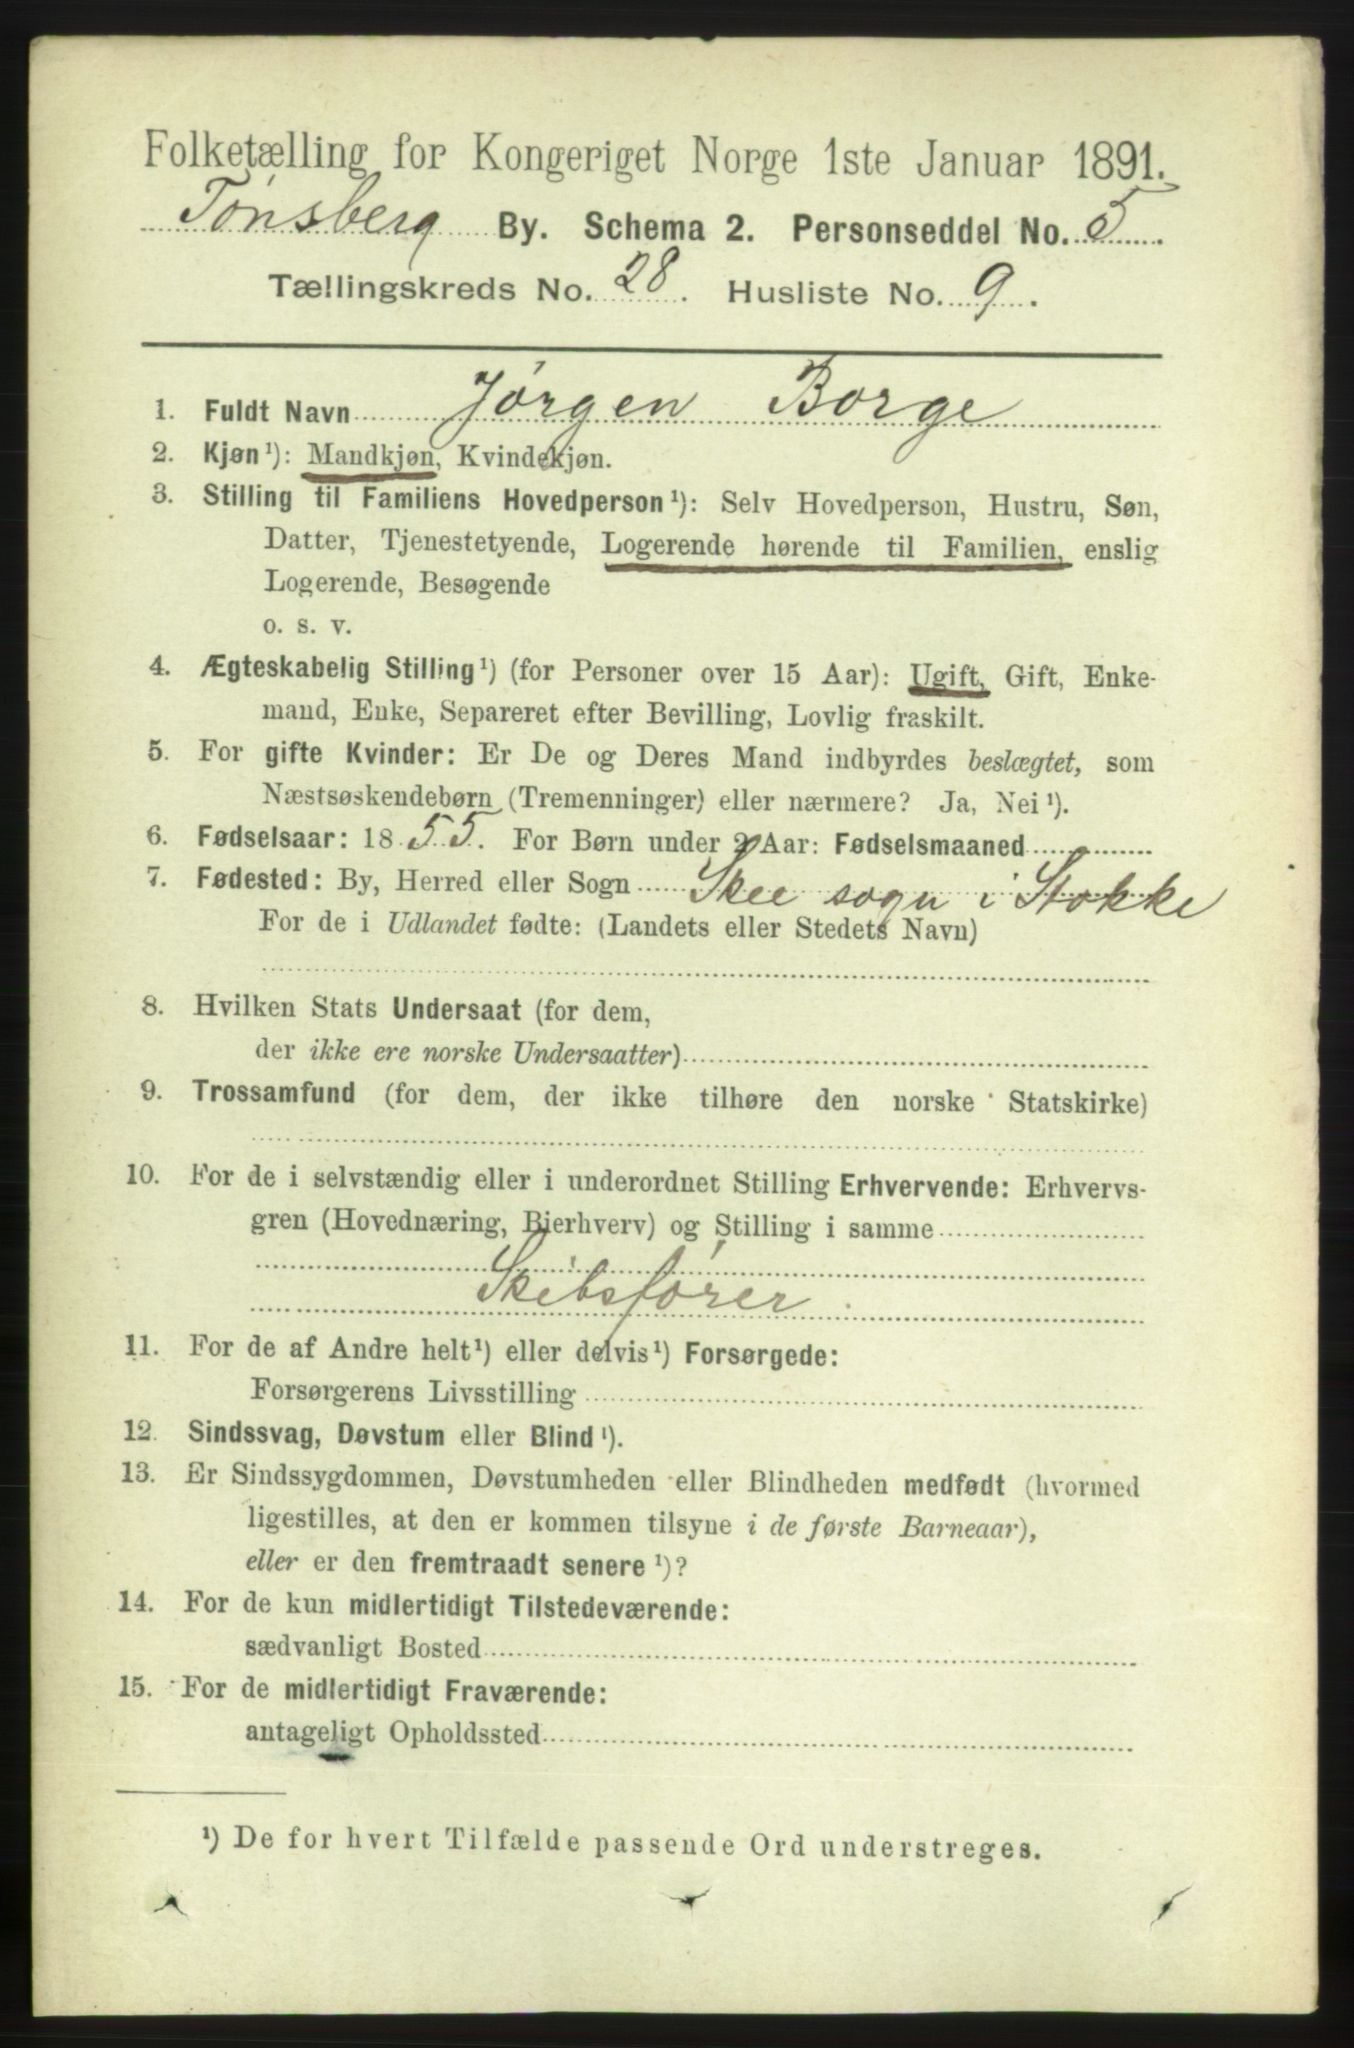 Folketælling for Kongeriget Norge 1ste Januar 1891.
Tønsberg By. Schema 2. Personseddel No. 5.
Tællingskreds No. 28. Husliste No. 9.
1. Fuldt Navn Jørgen Borge
2. Kjøn¹): Mandkjøn, Kvindekjøn.
3. Stilling til Familiens Hovedperson¹): Selv Hovedperson, Hustru, Søn,
Datter, Tjenestetyende, Logerende hørende til Familien, enslig
Logerende, Besøgende
o. s. v.
4. Ægteskabelig Stilling¹) (for Personer over 15 Aar): Ugift, Gift, Enke-
mand, Enke, Separeret efter Bevilling, Lovlig fraskilt.
5. For gifte Kvinder: Er De og Deres Mand indbyrdes beslægtet, som
Næstsøskendebørn (Tremenninger) eller nærmere? Ja, Nei¹).
6. Fødselsaar: 1855. For Børn under 2 Aar: Fødselsmaaned
7. Fødested: By, Herred eller Sogn Skee sogn i Stokke
For de i Udlandet fødte: (Landets eller Stedets Navn)
8. Hvilken Stats Undersaat (for dem,
der ikke ere norske Undersaatter)
9. Trossamfund (for dem, der ikke tilhøre den norske Statskirke)
10. For de i selvstændig eller i underordnet Stilling Erhvervende: Erhvervs-
gren (Hovednæring, Bierhverv) og Stilling i samme
Skibsfører.
11. For de af Andre helt¹) eller delvis¹) Forsørgede:
Forsørgerens Livsstilling
12. Sindssvag, Døvstum eller Blind¹).
13. Er Sindssygdommen, Døvstumheden eller Blindheden medfødt (hvormed
ligestilles, at den er kommen tilsyne i de første Barneaar),
eller er den fremtraadt senere¹)?
14. For de kun midlertidigt Tilstedeværende:
sædvanligt Bosted
15. For de midlertidigt Fraværende:
antageligt Opholdssted
¹) De for hvert Tilfælde passende Ord understreges.